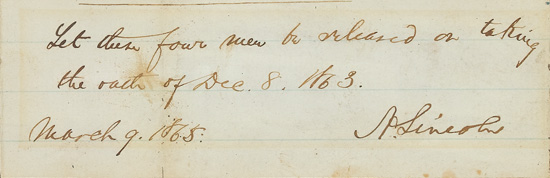 Let these four men be released on taking
the oath of Dec. 8. 1863.
March 9. 1865.
A. Lincoln